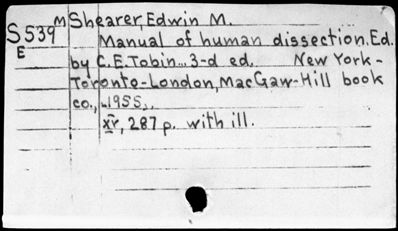 M Shearer, Edwin M.
S539 Manual of human dissection. Ed.
E by C.E.Tobin... 3-d ed. New York-
Toronto-London, MacGaw-Hill book
co., 1955.
xv, 287 p. with ill.